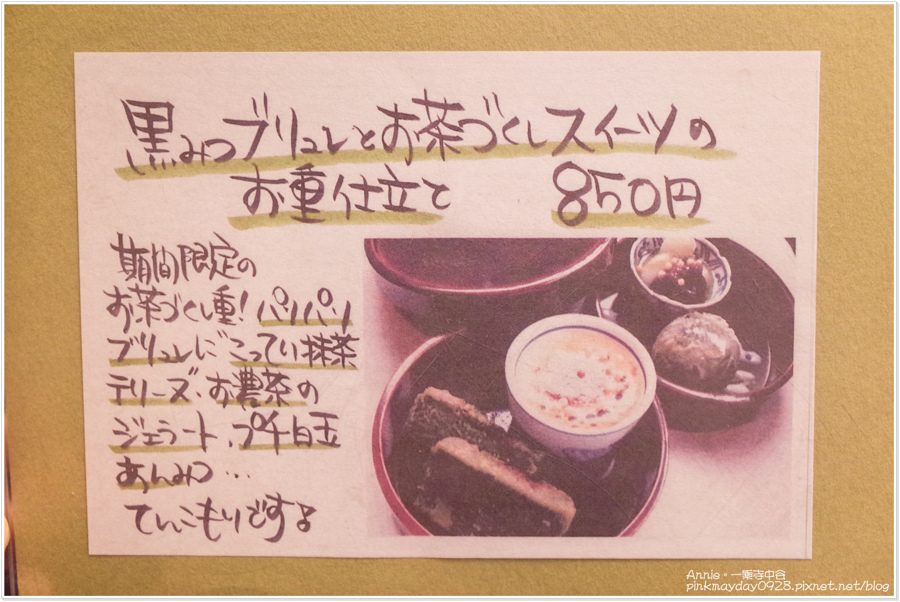 黒みつブリュレとお茶づくしスイーツの
お重仕立て 850円
期間限定の
お茶づくし重!パリパリ
ブリュレにこってり抹茶
テリーヌ、お濃茶の
ジェラート、プチ白玉
あんみつ…
てんこもりですよ
Annie。一乘寺中谷
pinkmayday0928.pixnet.net/blog